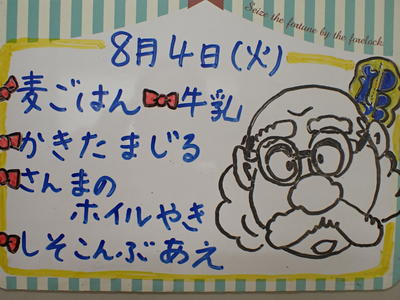 Seize the fortune by the forelock.
8月4日(火)
麦ごはん 牛乳
かきたまじる
さんまの
ホイルやき
しそこんぶあえ